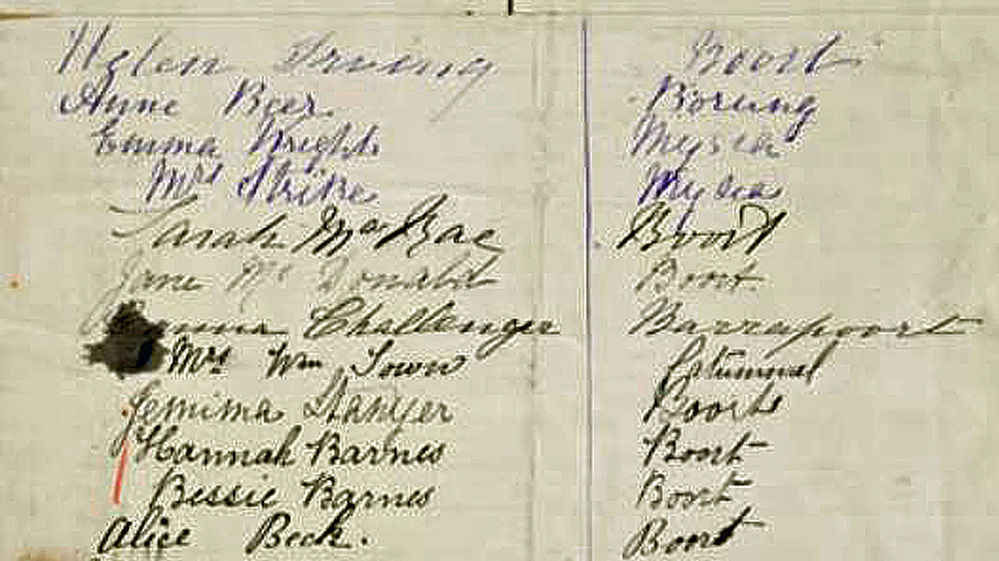 Helen Irving Boort
Anne Beer. Borung
Emma Wright Mysia
Mrs Strike Mysia
Sarah MacRae Boort
Jane Mc Donald Boort
Challenger Barrapoort
Mrs Wm Town
Jemima Stanger Boort
Hannah Barnes Boort
Bessie Barnes Boort
Alice Beck. Boort